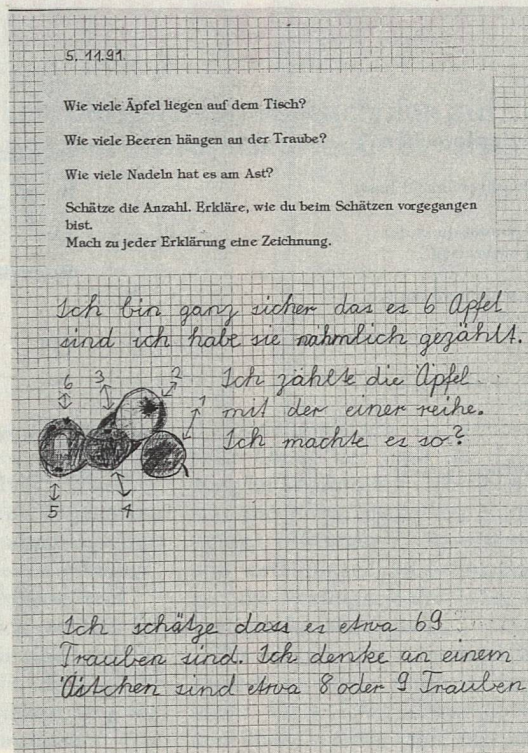 5. 11.91
Wie viele Äpfel liegen auf dem Tisch?
Wie viele Beeren hängen an der Traube?
Wie viele Nadeln hat es am Ast?
Schätze die Anzahl. Erkläre, wie du beim Schätzen vorgegangen
bist.
Mach zu jeder Erklärung eine Zeichnung.
Ich bin ganz sicher das es 6 Äpfel
sind ich habe sie nähmlich gezählt.
6 3 2 Ich zählte die Äpfel
1 mit der einer reihe.
Ich machte es so?
5 4
Ich schätze dass es etwa 69
Trauben sind. Ich denke an einem
Ästchen sind etwa 8 oder 9 Trauben